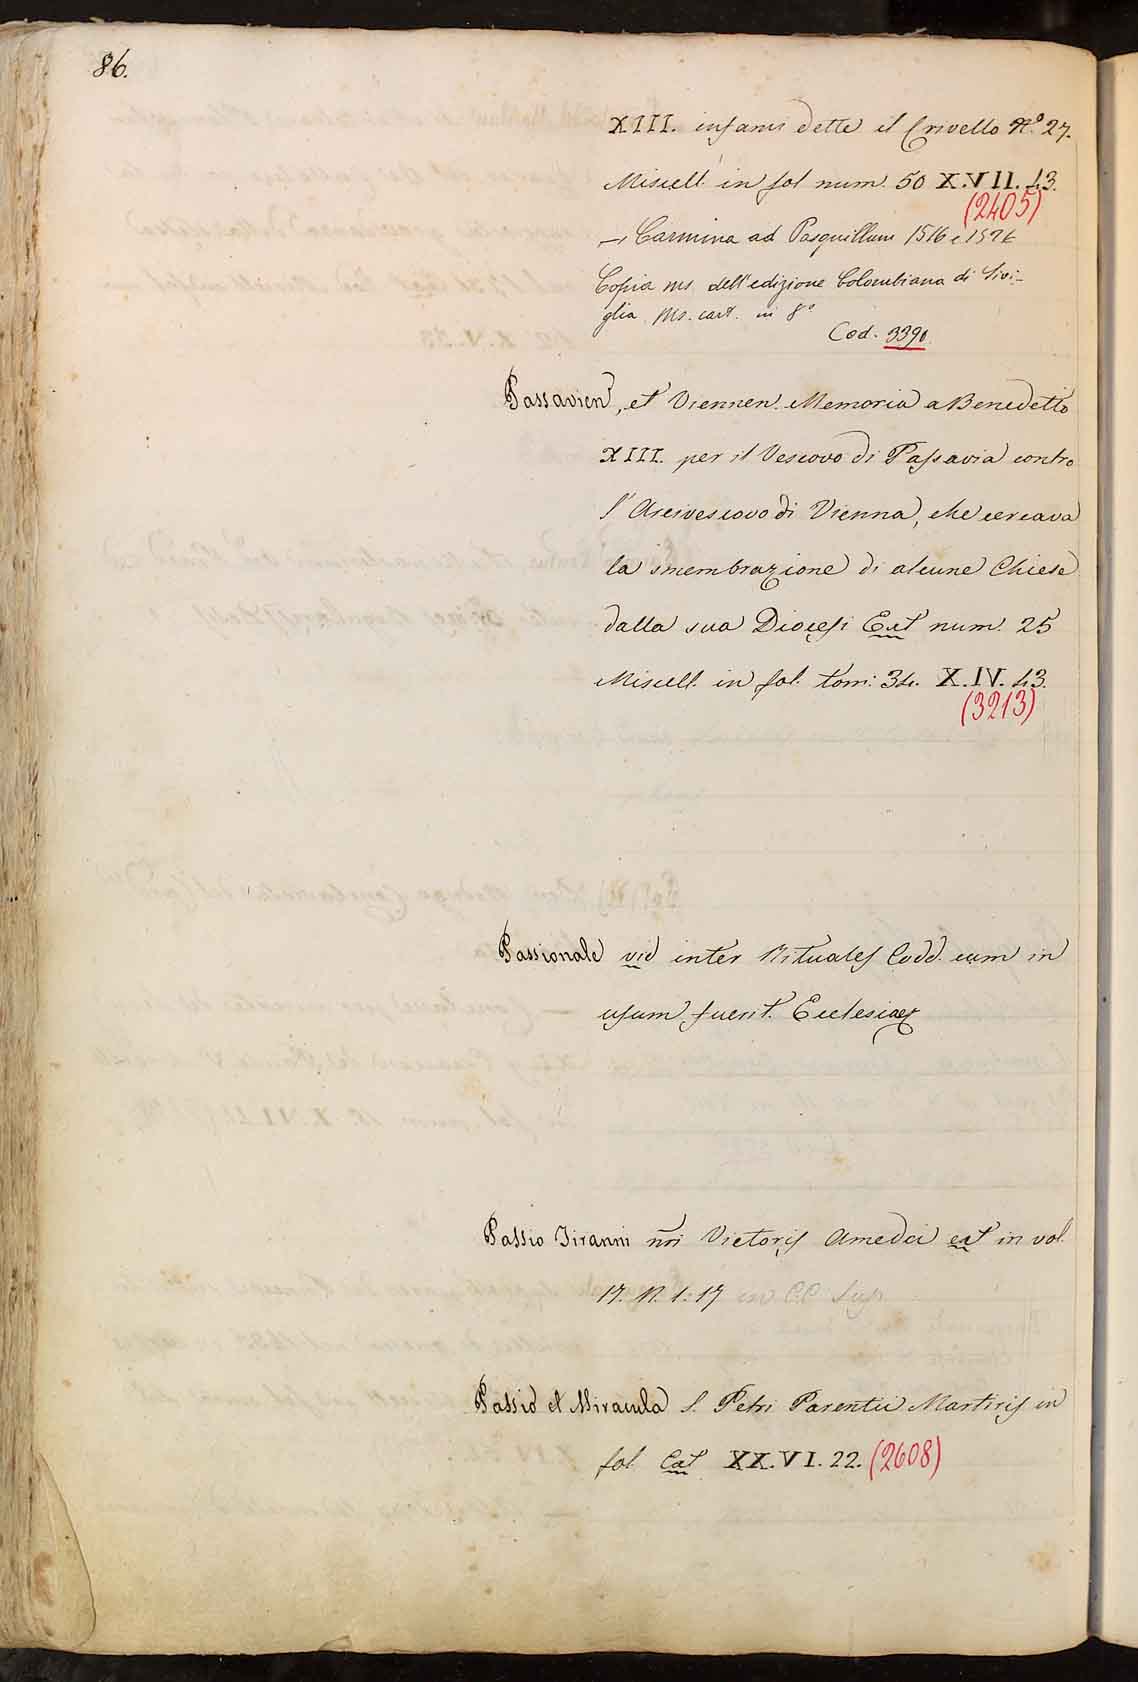 86.
XIII. infami dette il Crivello N.º 27.
Miscell. in fol num. 50 X.VII. 43.
(2405)
— Carmina ad Pasquillum 1516 e 1526
Copia ms. dell'edizione Colombiana di Sivi-
glia. Ms. cart. in 8º
Cod. 3390.
Passavien, et Viennen. Memoria a Benedetto
XIII. per il Vescovo di Passavia contro
l'Arcivescovo di Vienna, che cercava
la smembrazione di alcune Chiese
dalla sua Diocesi Ext num. 25
Miscell. in fol. tom: 34. X.IV. 43.
(3213)
Passionale vid inter Rituales Codd. cum in
usum fuerit Ecclesiae
Passio Tiranni nri Victoris Amedei ext in vol.
17. N. 1: 17 in C.C.
Passio et Miracula S. Petri Parentii Martiris in
fol Ext XX.VI. 22. (2608)